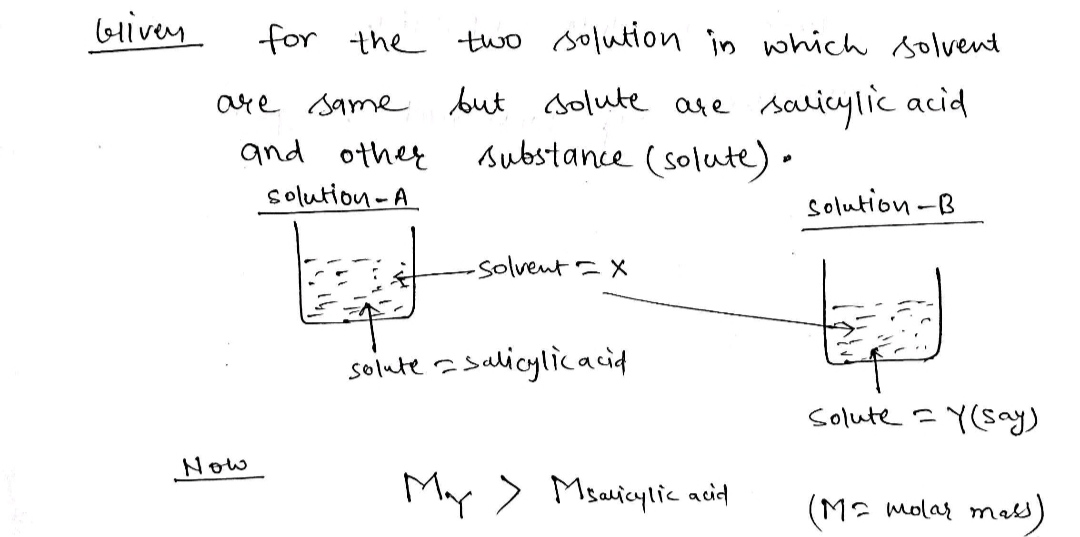 Given for the two solution in which solvent
are same but solute are salicylic acid
and other substance (solute).
solution-A
solution-B
solvent = X
solute = salicylic acid
solute = Y(say)
Now
My > Msalicylic acid (M= molar mass)